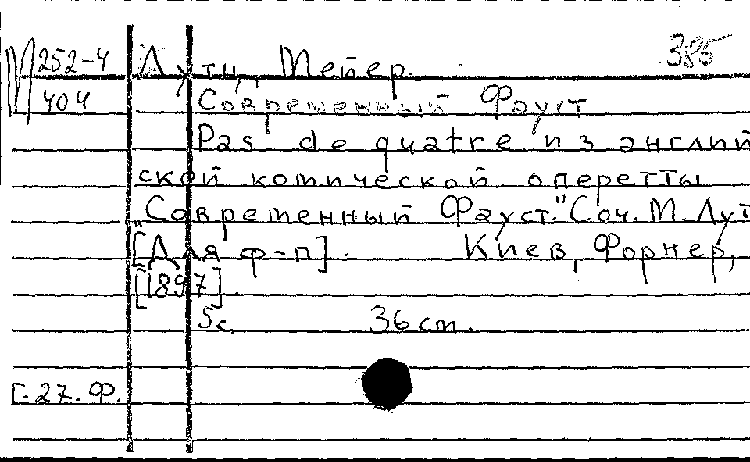 М 252-4 Лутц, Мейер. 385
404 Современный Фауст
Pas de quatre из англий
ской комической оперетты
"Современный Фауст." Соч. М. Лут
[Для ф-п]. Киев, Форнер,
[1897].
5с. 36 cm.
Г. 27. Ф.